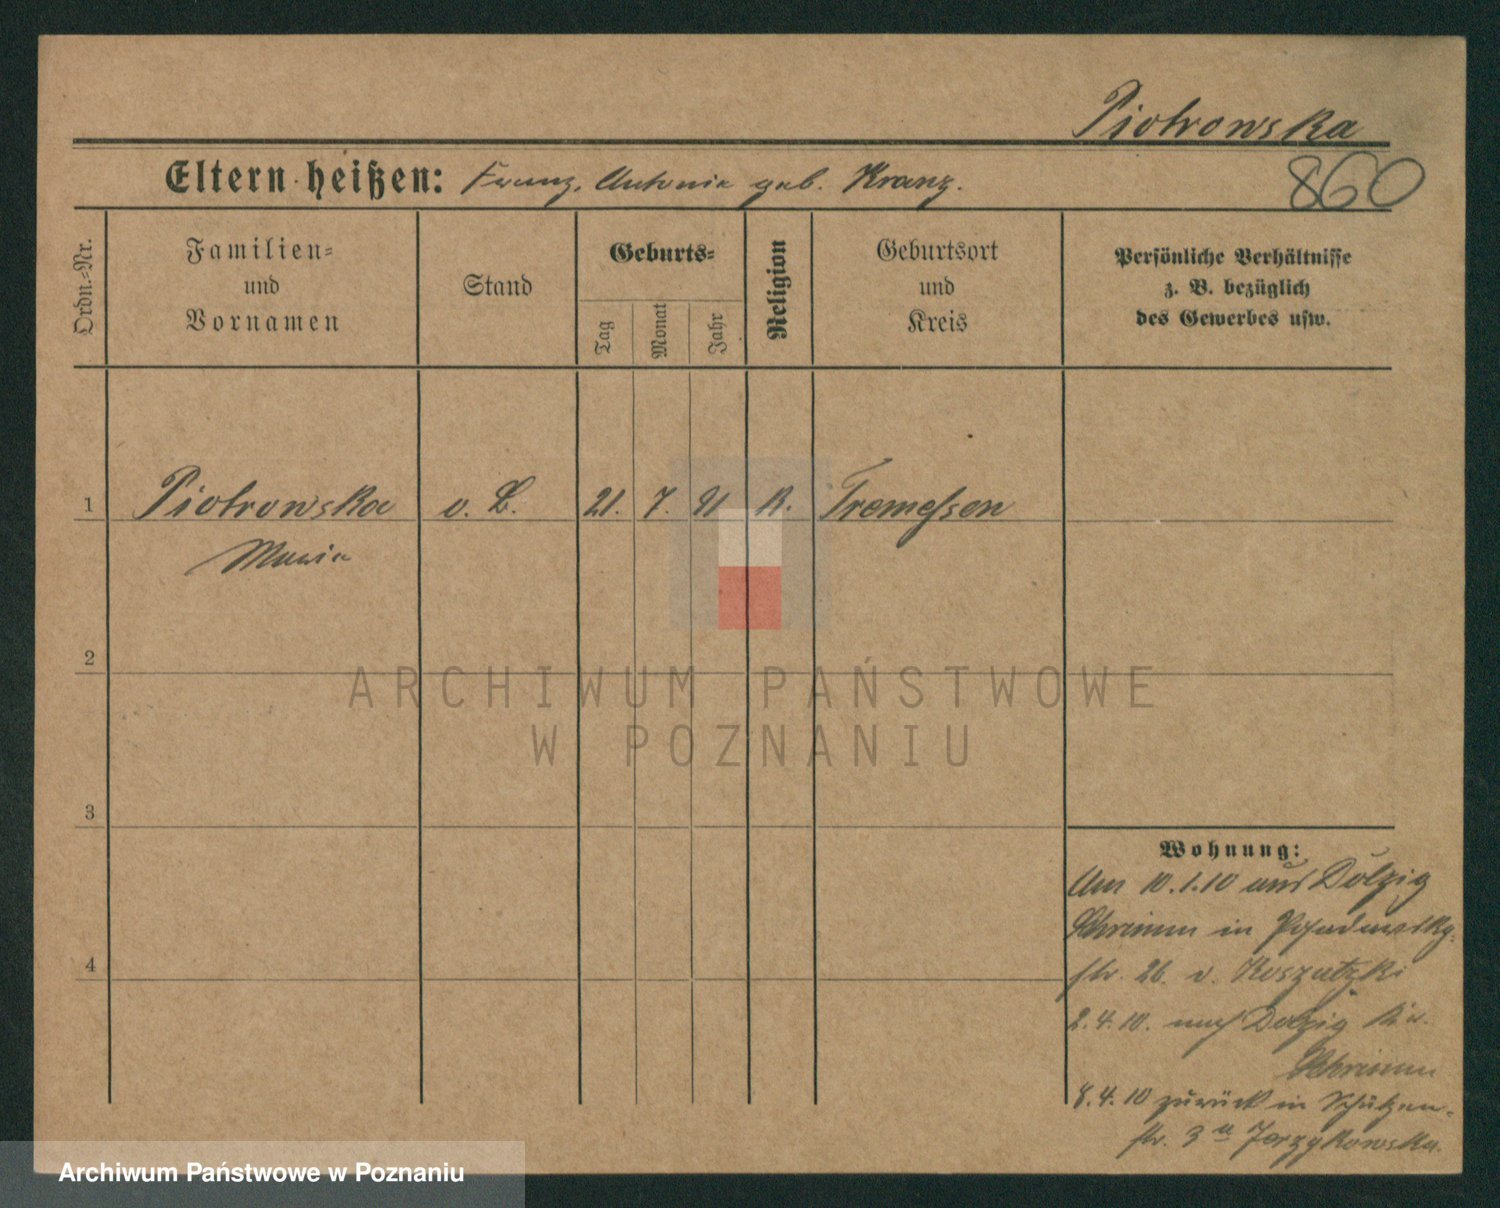 Piotrowska
860
Eltern heißen: Franz, Antonie geb. Kranz.
Ordn.-Nr.
Familien-
und
Vornamen
Stand
Geburts-
Tag
Monat
Jahr
Religion
Geburtsort
und
Kreis
Persönliche Verhältnisse
z. B. bezüglich
des Gewerbes usw.
1 Piotrowska o. B. 21. 7. 91 K. Tremessen
Maria
2
3
4
Wohnung:
Am 10.1.10 aus Dolzig
Schrimm in
str. 26. v. Koszutzki
2.4.10. nach Dolzig Kr.
Schrimm
8.4.10 zurück in Schützen-
str. 3 a Jerzykowska.
ARCHIWUM PAŃSTWOWE
W POZNANIU
Archiwum Państwowe w Poznaniu